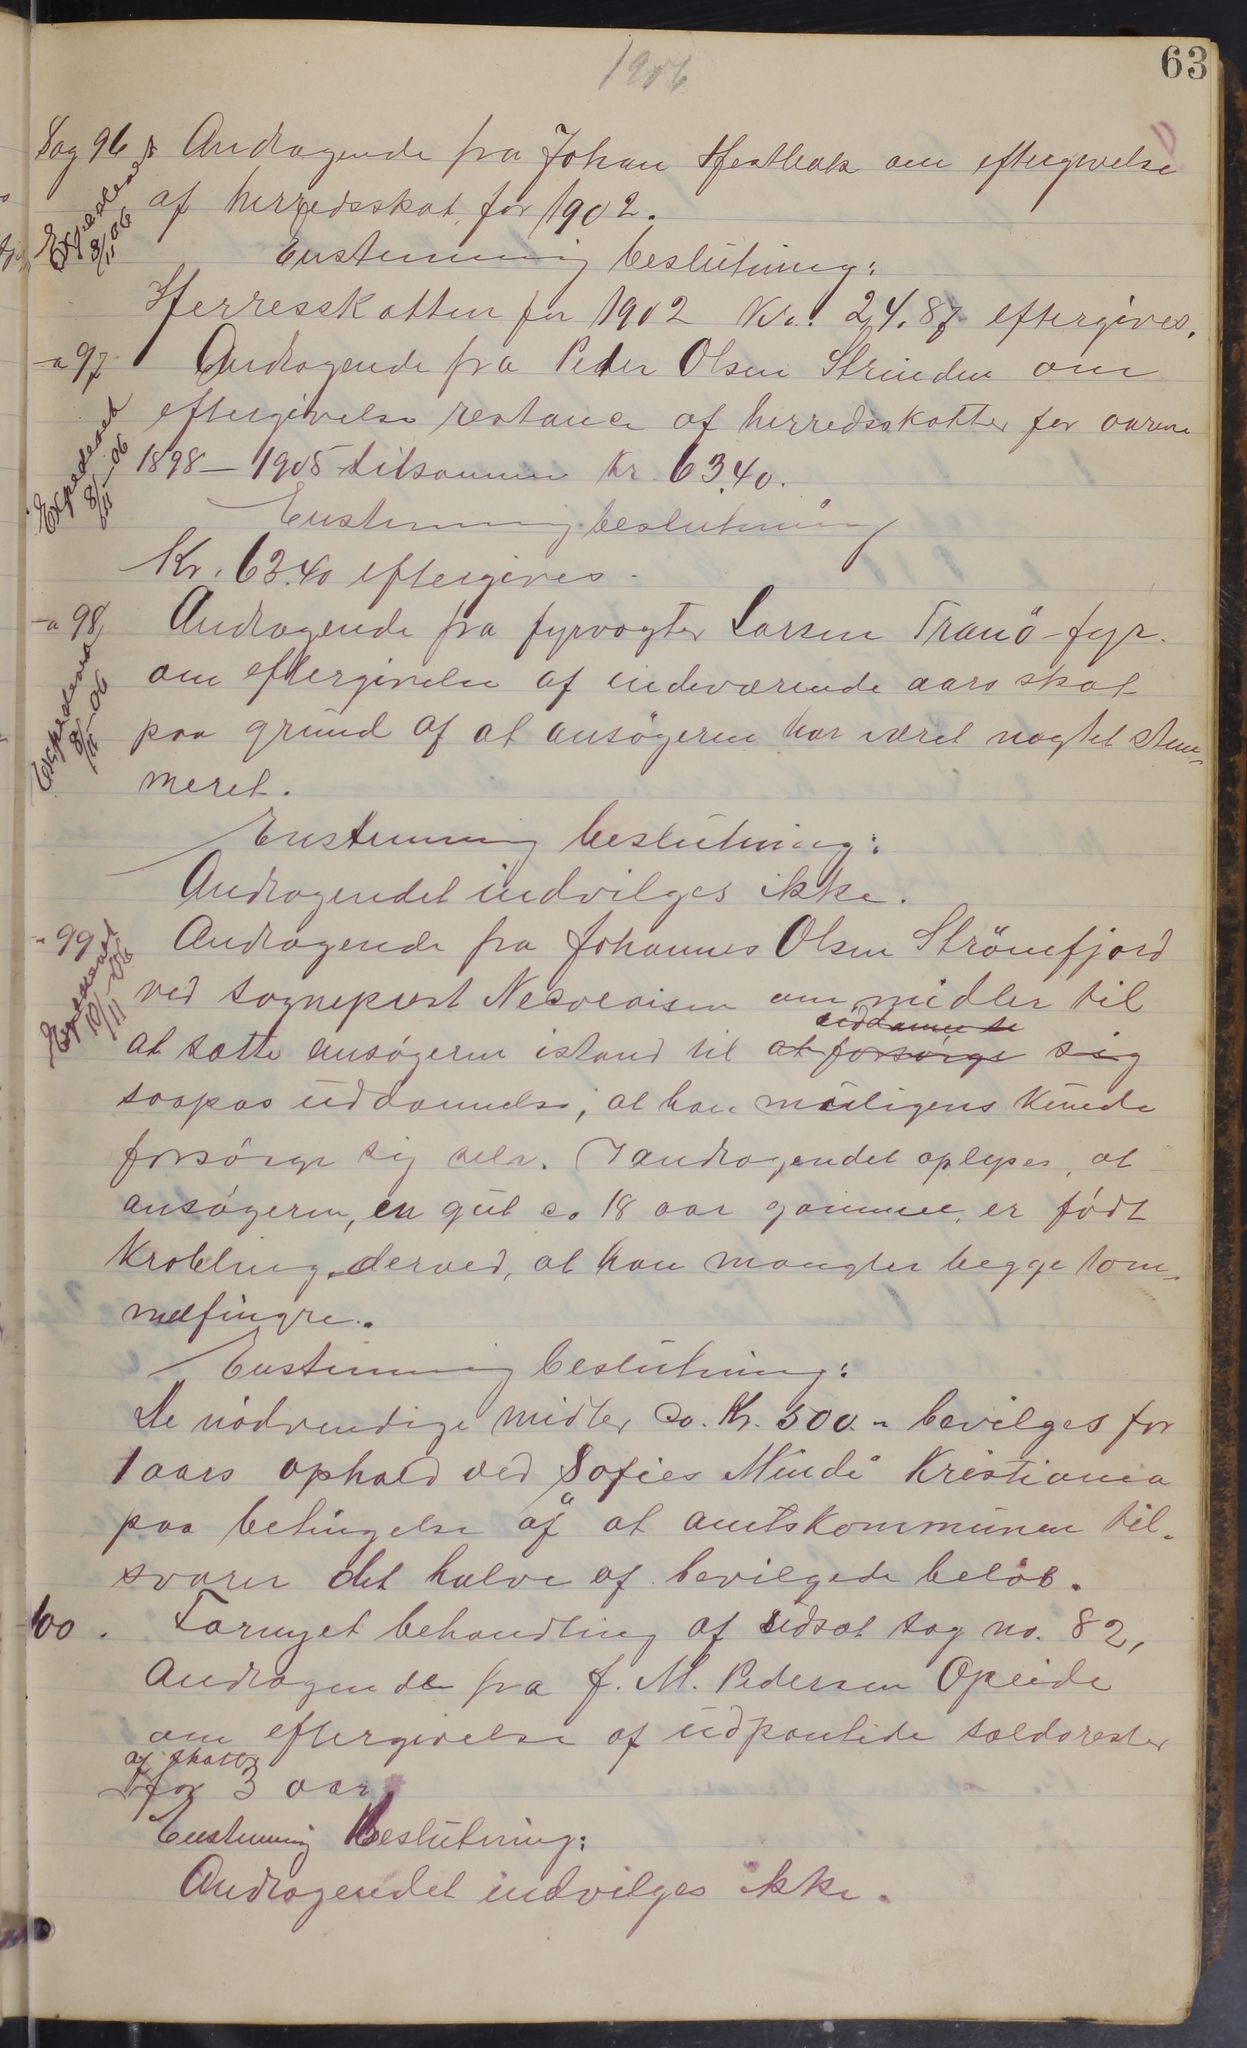 63
1906
Sag 96 Andragende fra Johan Hestbak om eftergivelse
Expederet 8/11 06
af herredsskat for 1902.
Enstemmig beslutning:
Herresskatten for 1902 Kr. 24.87 eftergives.
-"- 97 Andragende fra Peder Olsen Strinden om
Expederet 8/11-06
eftergivelse restance af herredsskatter for aarene
1898-1905 tilsammen Kr. 63.40.
Enstemmig beslutning
Kr. 63.40 eftergives.
-"- 98 Andragende fra fyrvogter Larsen Tranö-fyr.
Expederet 8/11-06
om eftergivelse af indeværende aars skat
paa grund af at ansögeren har været nægtet stem-
meret.
Enstemmig beslutning:
Andragendet indvilges ikke.
" 99 Andragende fra Johannes Olsen Strömfjord
Expederet 10/11-06
ved sogneprest om midler til
uddannelse
at sætte ansögeren istand til at forsörge sig
saapas uddannelse, at han muligens kunde
forsörge sig selv. I andragendet oplyses, at
ansögeren, en gut ca 18 aar gammel, er födt
Kröbling derved, at han mangler begge tom-
melfingre.
Enstemmig beslutning:
De nödvendige midler Ca. Kr. 500.- bevilges for
1 aars ophold ved "Sofies Minde" Kristiania
paa betingelse af at amtskommunen til-
svarer det halve af bevilgede belöb.
100. Fornyet behandling af sidst sag no. 82,
Andragende fra J. M. Pedersen Opeide
om eftergivelse af udpantede saldorester
af skatter
for 3 aar.
Enstemmig Beslutning:
Andragendet indvilges ikke.